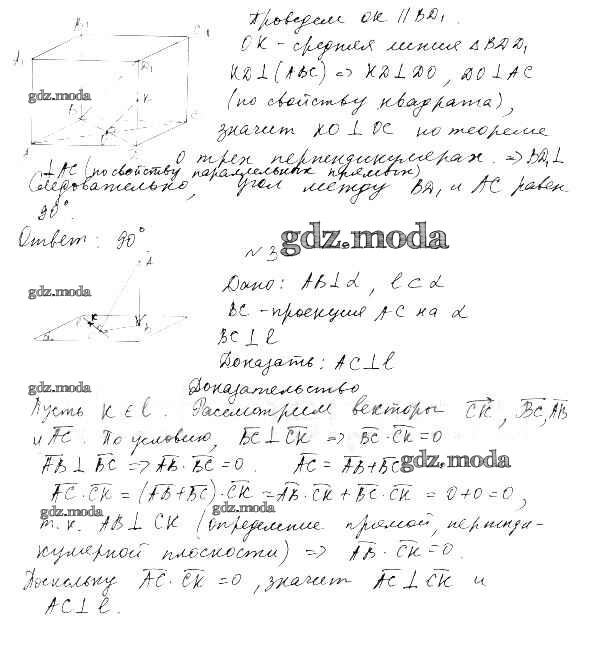 Проведем OK || BD₁.
OK - средняя линия △BDD₁
KD⊥(ABC) => KD⊥DO, DO⊥AC
(по свойству квадрата),
значит KO⊥OC по теореме
о трех перпендикулярах. => BD₁⊥
⊥AC (по свойству параллельных прямых)
Следовательно, угол между BD₁ и AC равен
90°.
Ответ: 90°
gdz.moda
gdz.moda
N 3
gdz.moda
Дано: AB⊥α, l⊂α
BC - проекция AC на α
BC⊥l
Доказать: AC⊥l
gdz.moda
Доказательство
Пусть K∈l. Рассмотрим векторы CK, BC, AB
и AC. По условию, BC⊥CK => BC·CK=0
AB⊥BC => AB·BC=0. AC=AB+BC
gdz.moda
AC·CK=(AB+BC)·CK=AB·CK+BC·CK=0+0=0,
gdz.moda
gdz.moda
т.к. AB⊥CK (определение прямой, перпенди-
кулярной плоскости) => AB·CK=0.
Поскольку AC·CK=0, значит AC⊥CK и
AC⊥l.